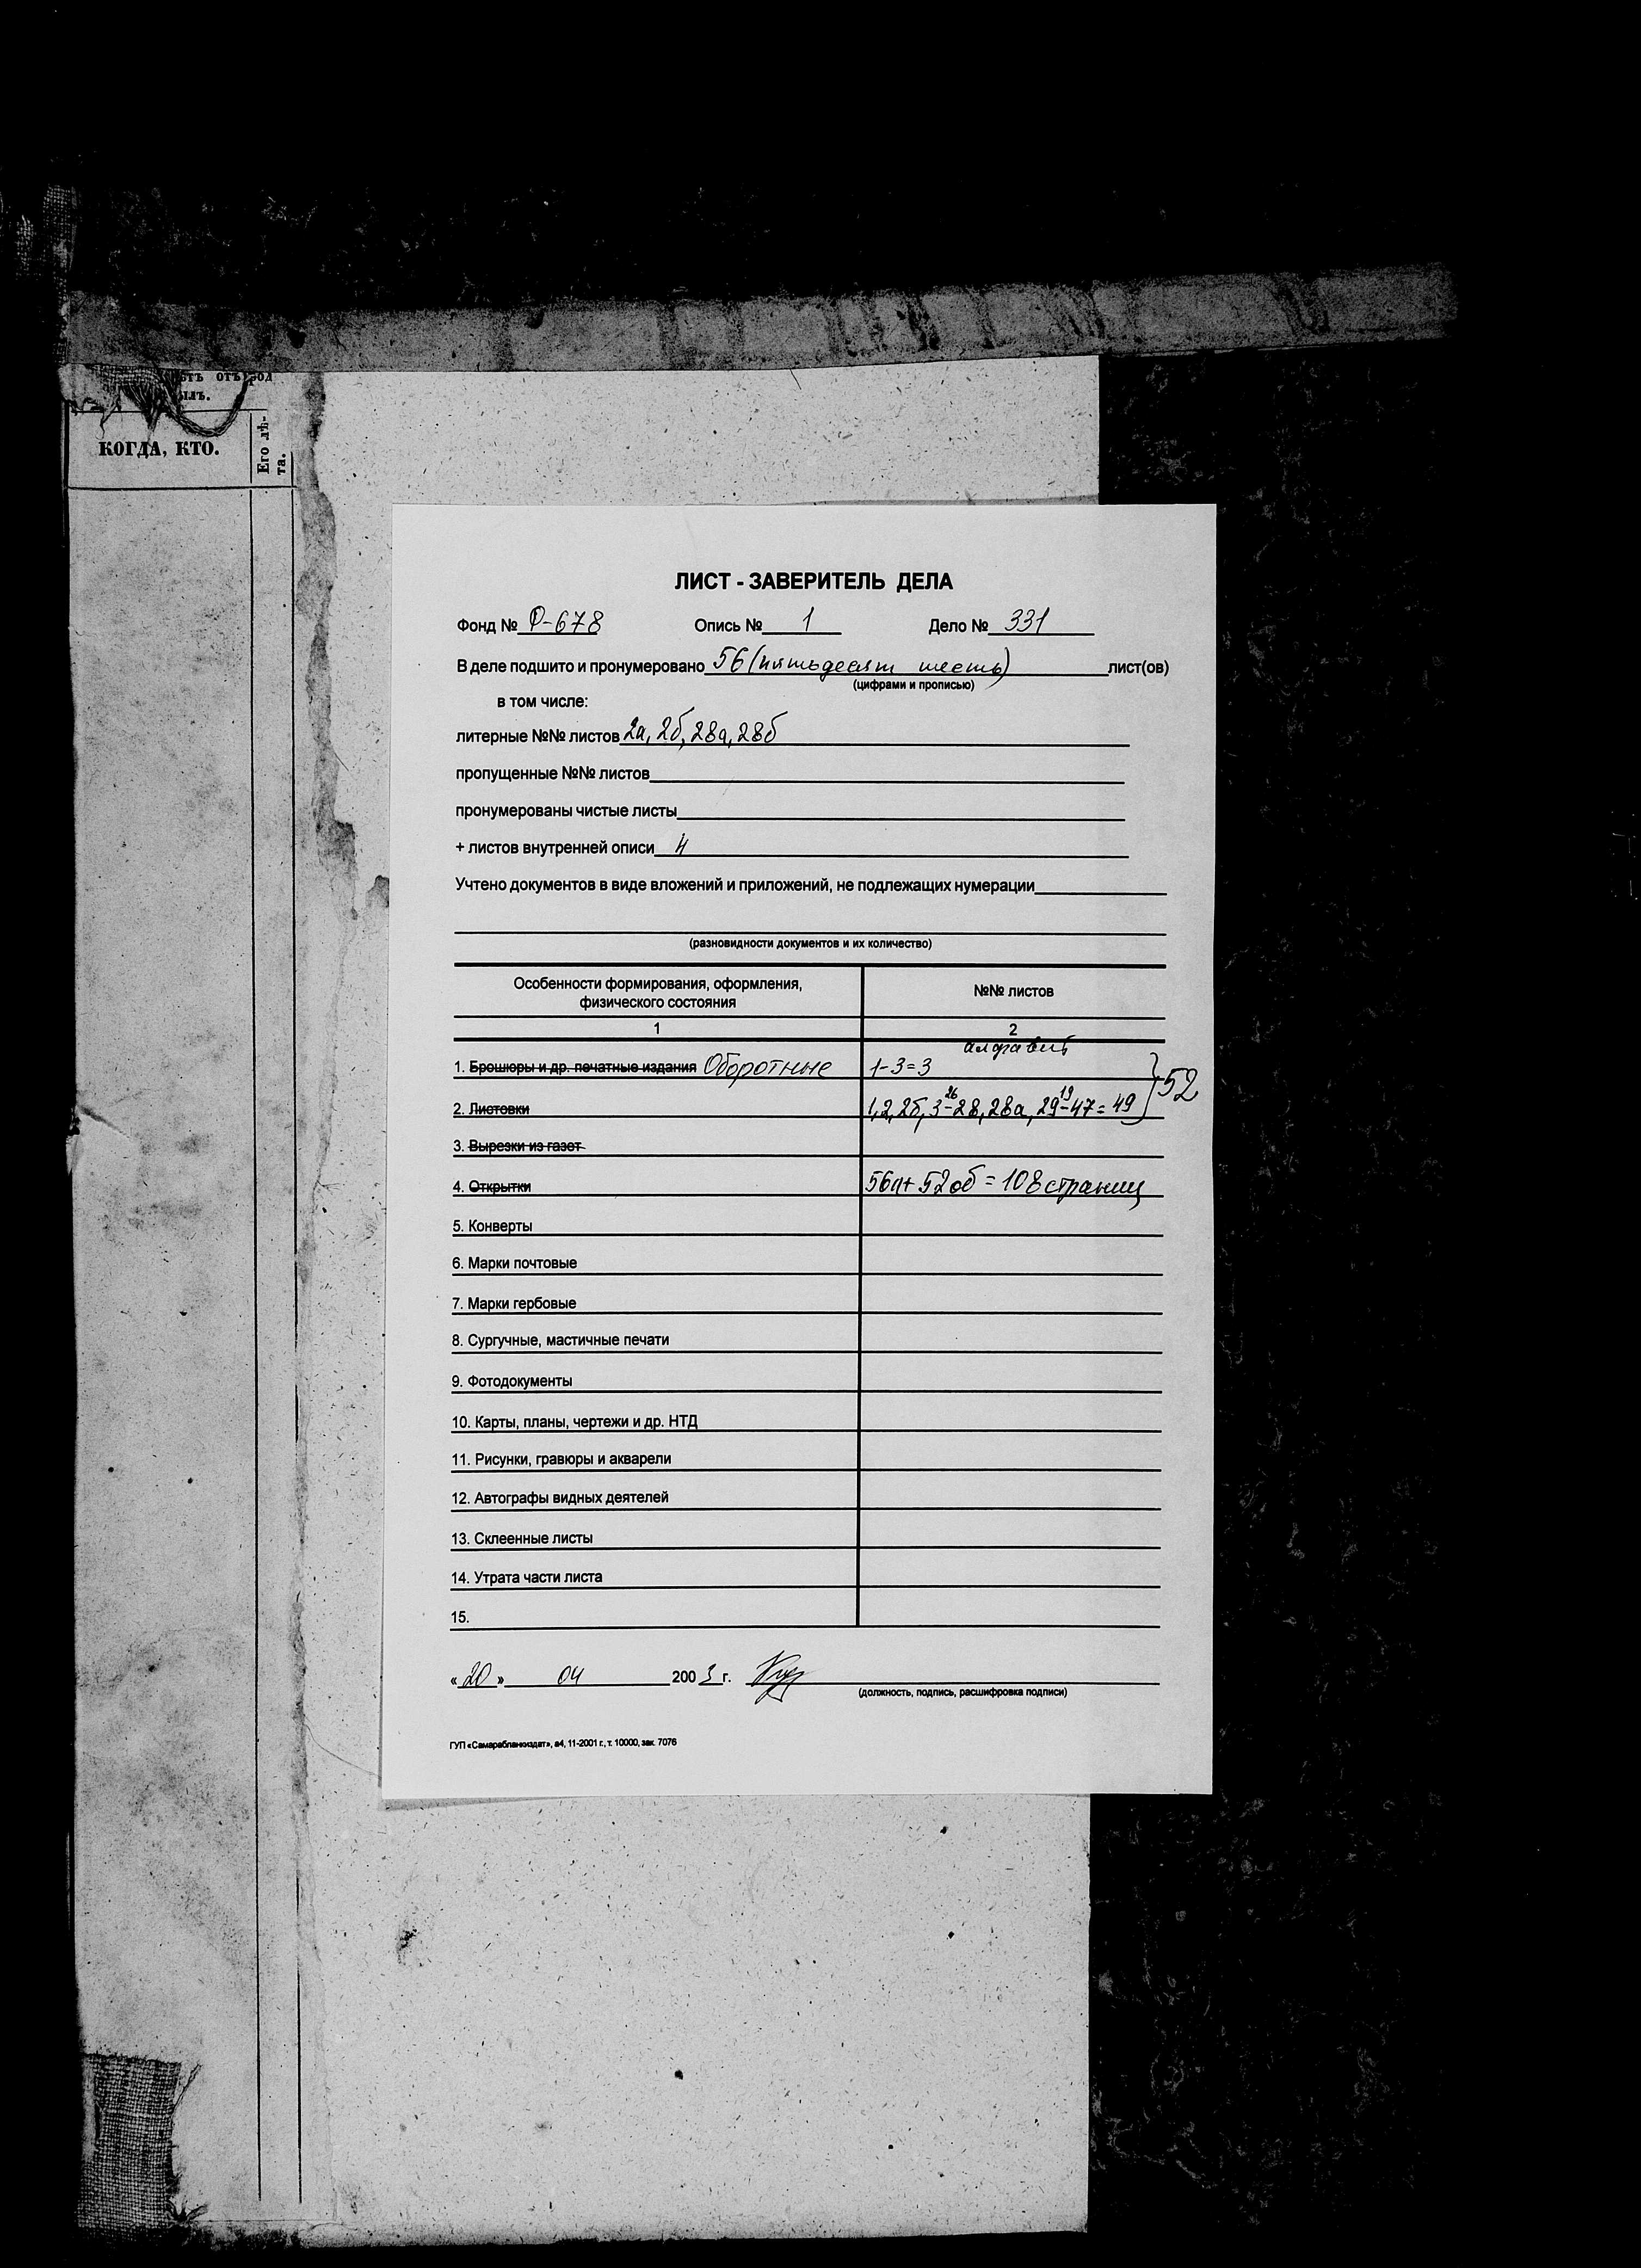 отъ род
КОГДА, КТО.
Его лѣ-
та.
ЛИСТ - ЗАВЕРИТЕЛЬ ДЕЛА
Фонд № Ф-678 Опись № 1 Дело № 331
В деле подшито и пронумеровано 56 (пятьдесят шесть) лист(ов)
(цифрами и прописью)
в том числе:
литерные №№ листов 2а, 2б, 28а, 28б
пропущенные №№ листов
пронумерованы чистые листы
+ листов внутренней описи 4
Учтено документов в виде вложений и приложений, не подлежащих нумерации
(разновидности документов и их количество)
Особенности формирования, оформления, физического состояния №№ листов
1 2
алфавит
1. Брошюры и др. печатные издания Оборотные 1-3=3
2. Листовки 1,2,2б,3-28,28а,29-47=49 } 52
26 19
3. Вырезки из газет
4. Открытки 56л+52об=108страниц
5. Конверты
6. Марки почтовые
7. Марки гербовые
8. Сургучные, мастичные печати
9. Фотодокументы
10. Карты, планы, чертежи и др. НТД
11. Рисунки, гравюры и акварели
12. Автографы видных деятелей
13. Склеенные листы
14. Утрата части листа
15.
«20» 04 2003 г.
(должность, подпись, расшифровка подписи)
ГУП «Самарабланкиздат», а4, 11-2001 г., т. 10000, зак. 7076